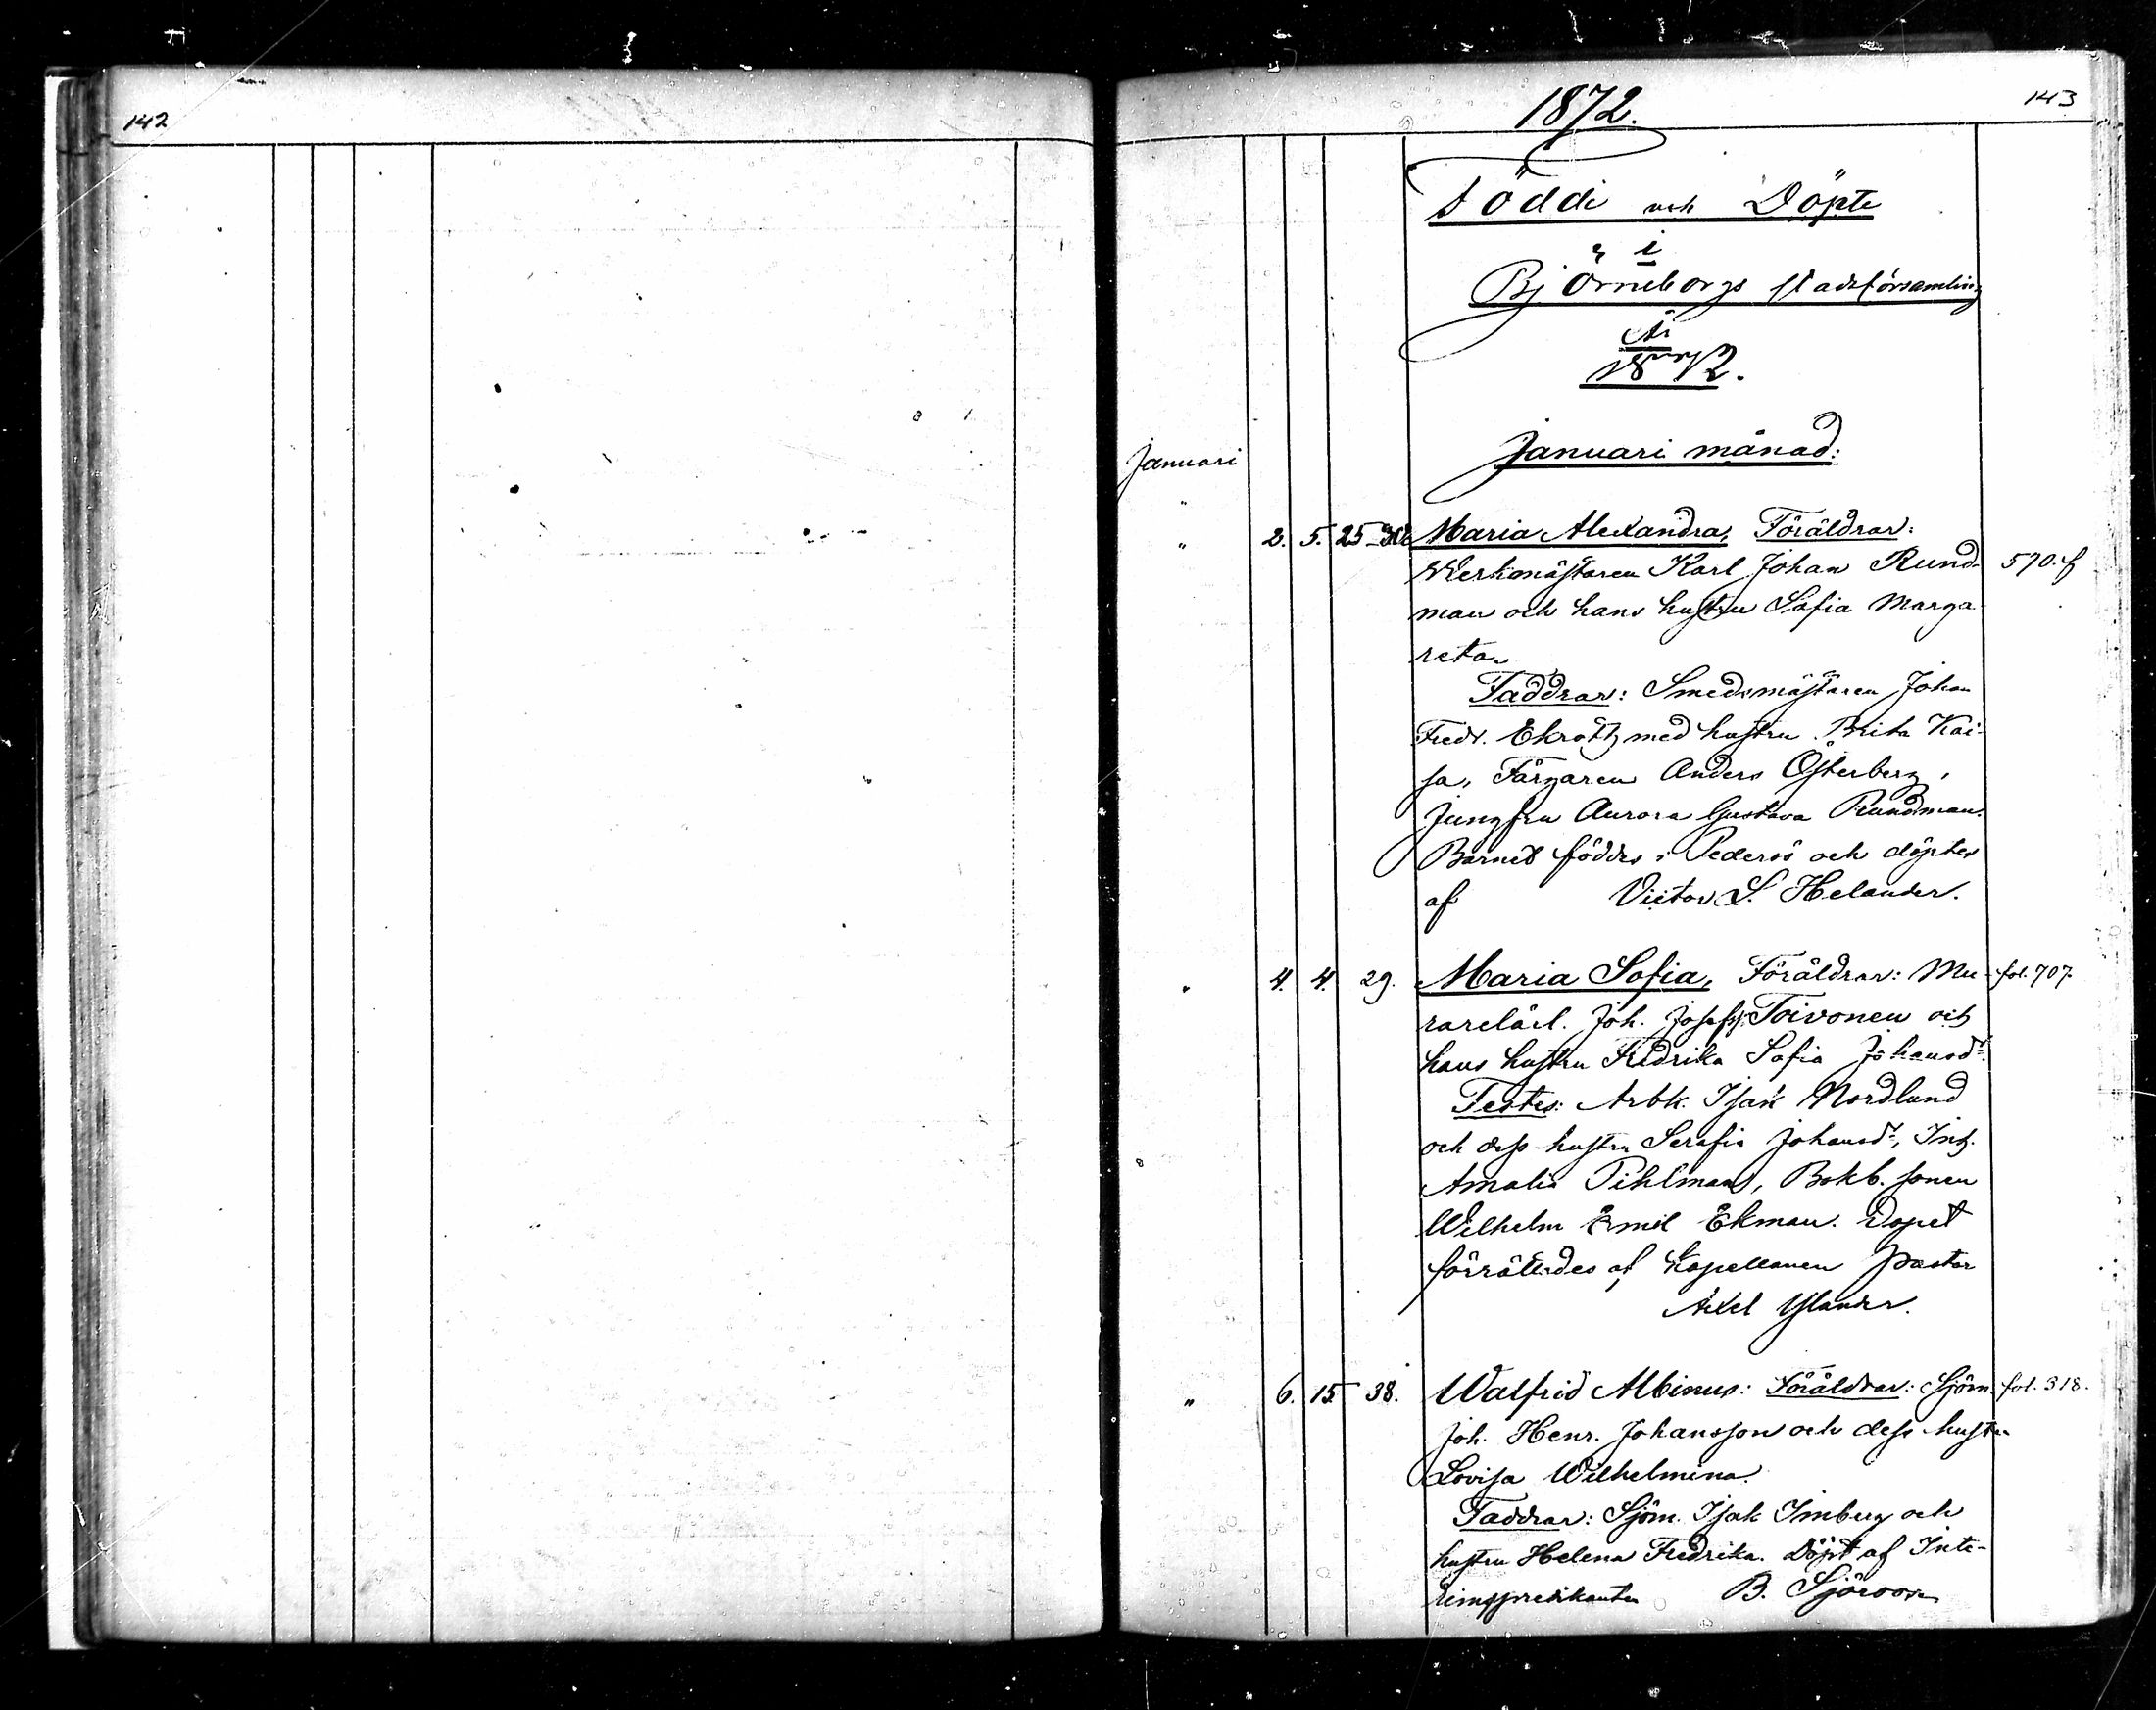 142
143
1872.
Födde och Döpte
i
Björneborgs stadsförsamling
År
1872.
Januari månad:
Januari
"
" 2. 5. 25 Maria Alexandra, Föräldrar:
Werkmästaren Karl Johan Rund- 570. f
man och hans hustru Sofia Marga
reta.
Faddrar: Smedsmästaren Johan
Fredr. med hustru Brita Kai-
sa, Färgaren Anders Österberg,
Jungfru Aurora Gustava Rundman.
Barnet föddes i Pedersö och döptes
af Victor L. Helander.
" 4. 4. 29. Maria Sofia, Föräldrar: Mu- fol. 707.
rarelärl. Joh. Josefsz. Toivonen och
hans hustru Fredrika Sofia Johansdr.
Testes: Arbk. Isak Nordlund
och dess hustru Serafia Johansdr, Inh.
Amalia Pihlman, Bokb. sonen
Wilhelm Emil Ekman. Dopet
förrättades af Kapellanen Pastor
Axel Ylander.
" 6. 15 38. Walfrid Albinus: Föräldrar: Sjöm. fol. 318.
Joh. Henr. Johansson och dess hustru
Lovisa Wilhelmina.
Faddrar: Sjöm. Isak Imberg och
hustru Helena Fredrika. Döpt af Inte-
rimspredikanten B. Sjöroos.